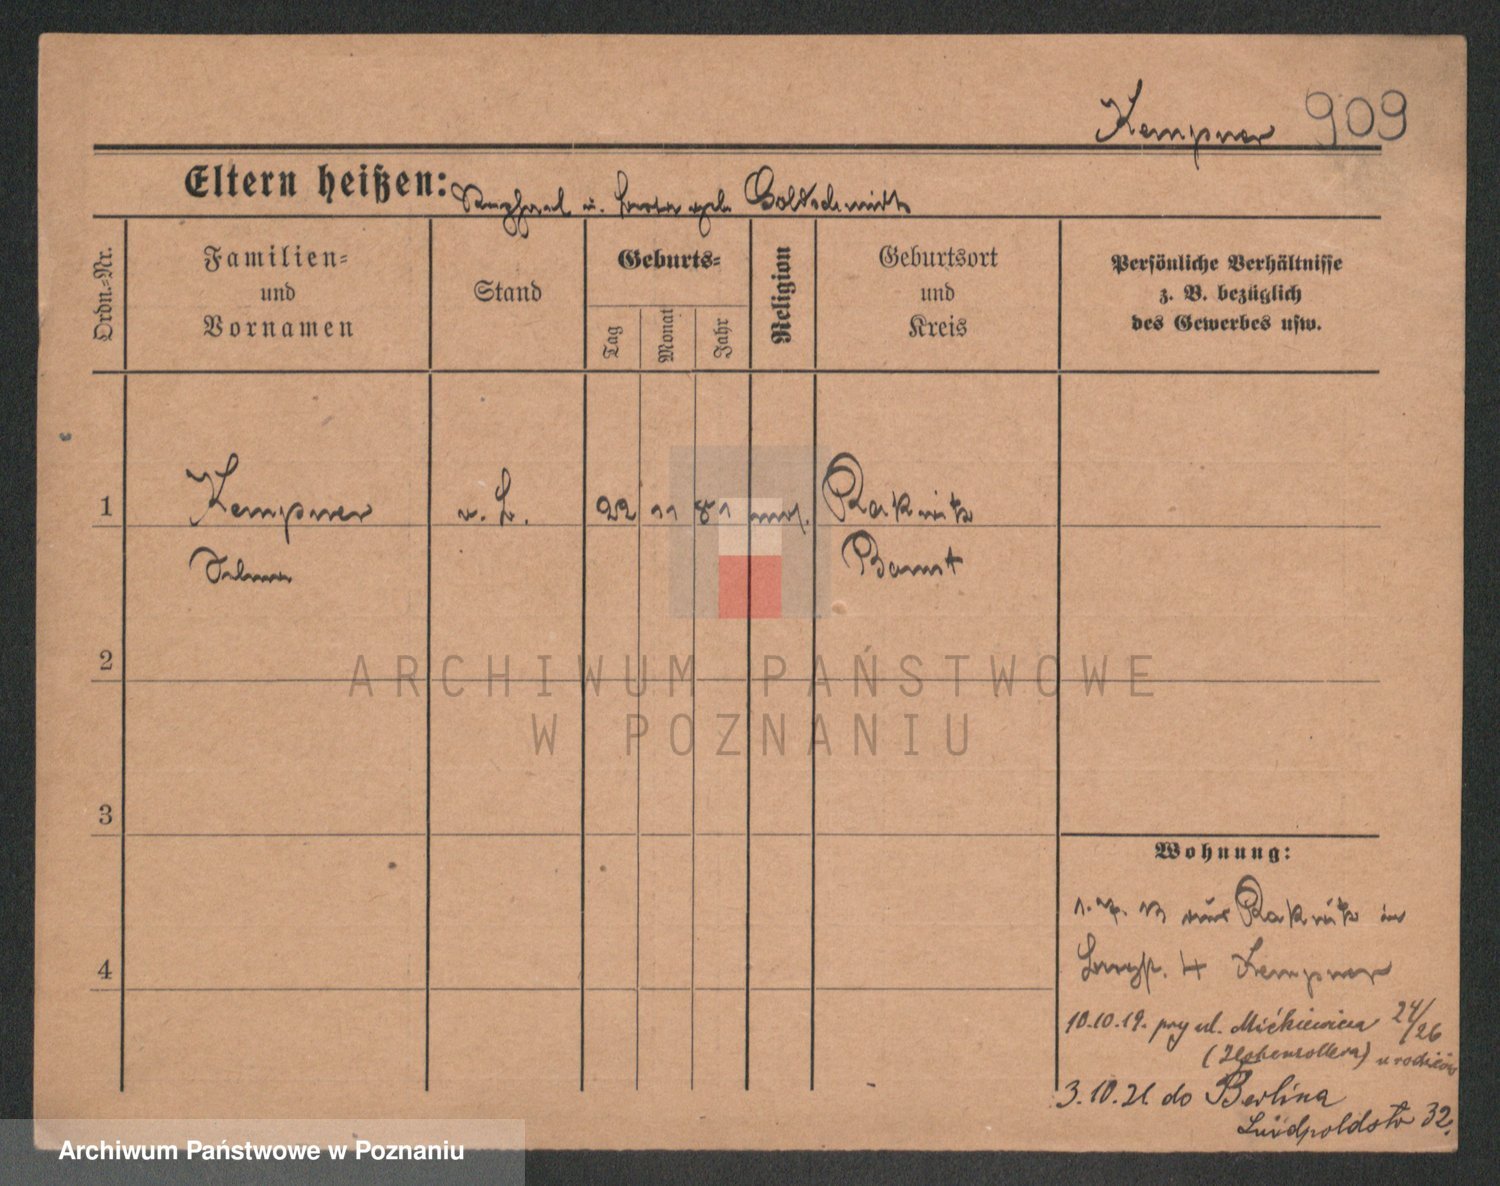 Kempner 909
Eltern heißen: Raphael u. geb. Goldschmidt
Ordn.-Nr.
Familien-
und
Vornamen
Stand
Geburts-
Tag
Monat
Jahr
Religion
Geburtsort
und
Kreis
Persönliche Verhältnisse
z. B. bezüglich
des Gewerbes usw.
1 Kempner 22 11 81 mos. Rakwitz
Selma Bomst
2
ARCHIWUM PAŃSTWOWE
W POZNANIU
3
Wohnung:
aus Rakwitz
4
4 Kempner
10.10.19. przy ul. Mickiewicza 24/26
(Hohenzollern) u rodziców
3.10.21 do Berlina
Luidpoldstr 32.
Archiwum Państwowe w Poznaniu